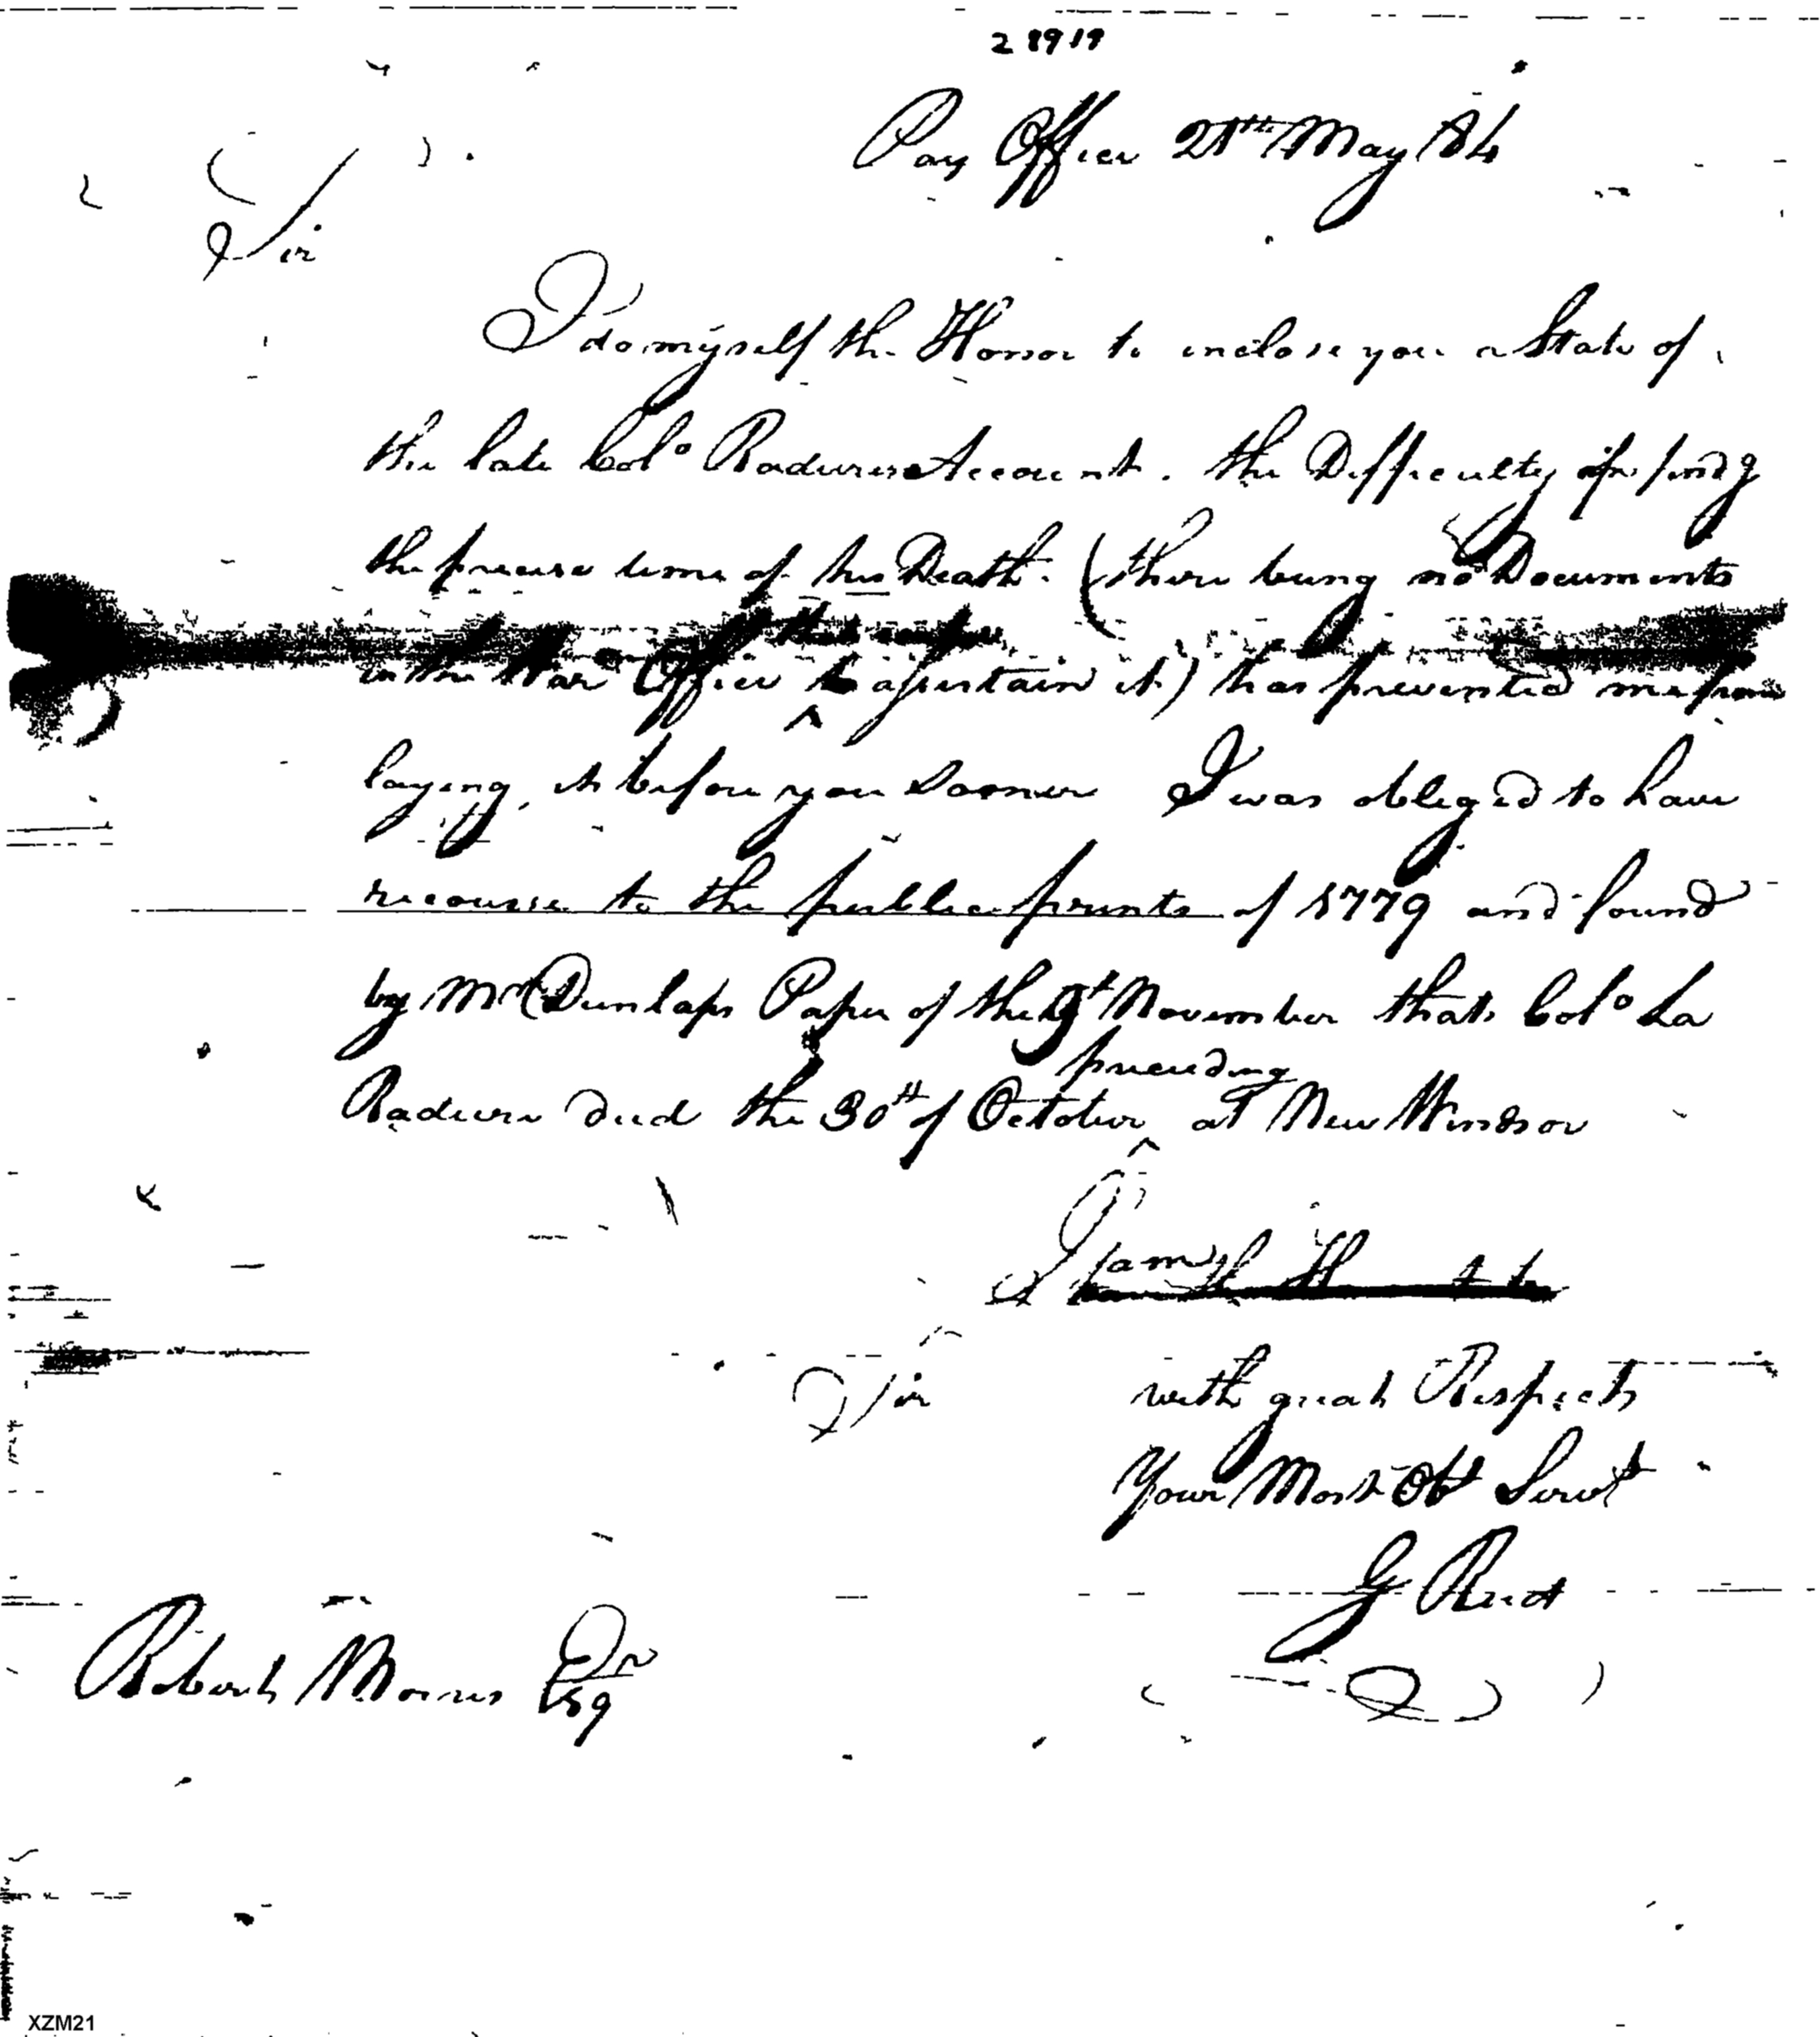 28919
Pay Office 21st May 84
Sir
I do myself the Honor to inclose you a State of
the late Colo Radieres Account. the Difficulty of find'g
the precise time of his Death. (there being no Documents
in the War Office to assertain it) has prevented me from
laying, it before you Sooner I was obliged to have
recourse to the public prints of 1779 and found
by Mr Dunlaps Paper of the 9t November that Colo La
preceeding
Radiere died the 30th of October at New Windsor
I am
Sir with great Respect
Your Most Obt Servt
G Reed
Robert Morris Esqr
XZM21